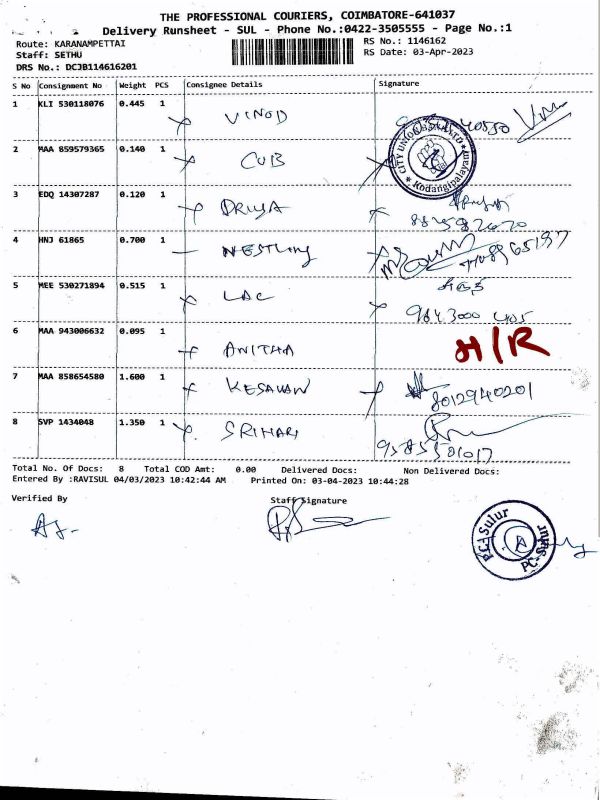 THE PROFESSIONAL COURIERS, COIMBATORE-641037
Delivery Runsheet - SUL - Phone No.:0422-3505555 - Page No.:1
Route: KARANAMPETTAI
RS No.: 1146162
Staff: SETHU
RS Date: 03-Apr-2023
DRS No.: DCJB114616201
S No Consignment No Weight PCS Consignee Details Signature
1 KLI 530118076 0.445 1 VINOD
2 MAA 859579365 0.140 1 CUB
CITY UNION BANK LTD
Kodangipalayam
3 EDQ 14307287 0.120 1 PRIYA
4 HNJ 61865 0.700 1 NESTLING
5 MEE 530271894 0.515 1 LAC
984 3000 405
6 MAA 943006632 0.095 1 ANITHA H/R
7 MAA 858654580 1.600 1 KESAVAN
8012940201
8 SVP 1434048 1.350 1 SRIHARI
9585501017
Total No. Of Docs: 8 Total COD Amt: 0.00 Delivered Docs: Non Delivered Docs:
Entered By :RAVISUL 04/03/2023 10:42:44 AM Printed On: 03-04-2023 10:44:28
Verified By Staff Signature
PC-Sulur
PC-Sulur